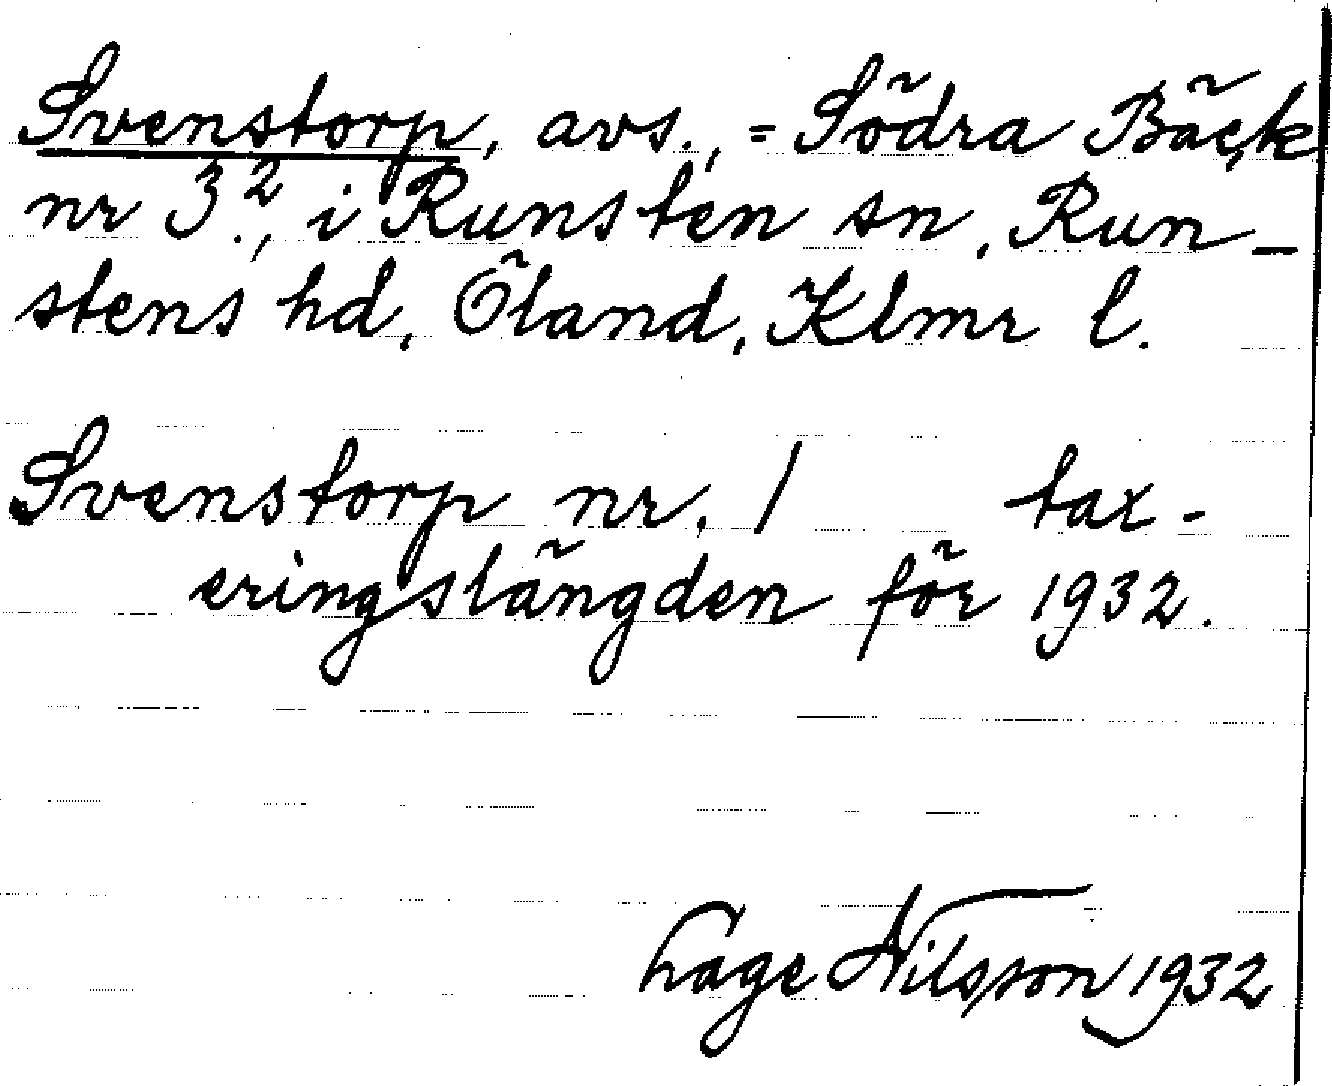 Svenstorp, avs., = Södra Bäck
nr 3²., i Runsten sn, Run-
stens hd, Öland, Klmr l.
Svenstorp nr. 1 tax-
eringslängden för 1932.
Åage Nilsson 1932